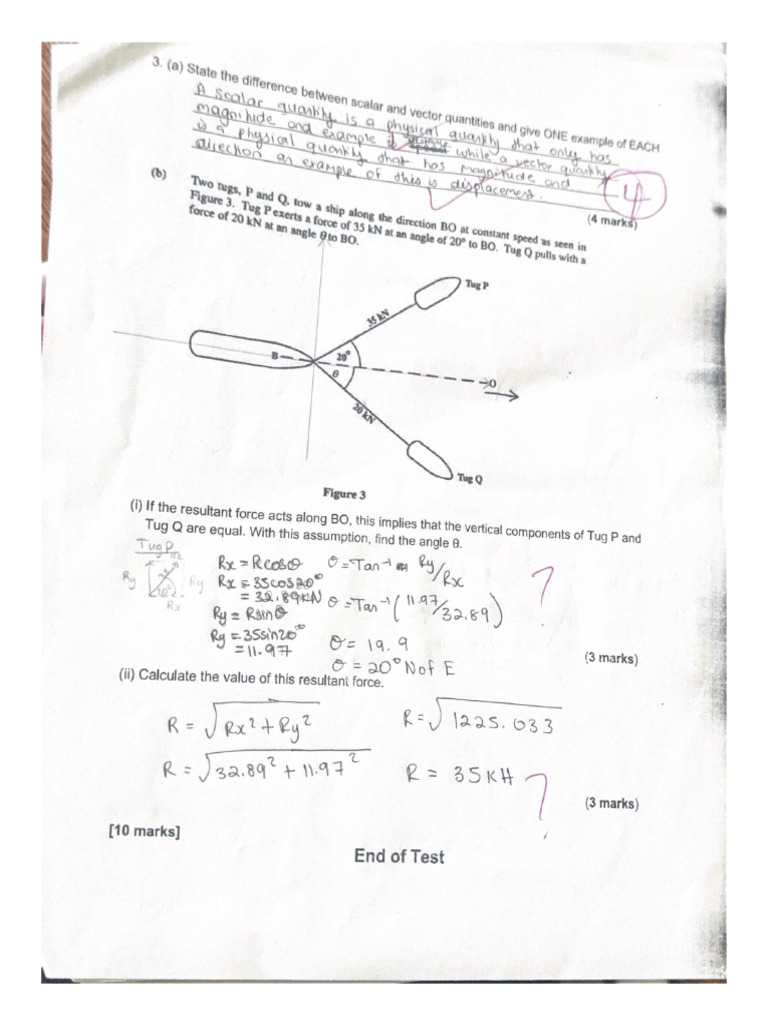 3. (a) State the difference between scalar and vector quantities and give ONE example of EACH
A scalar quantity is a physical quantity that only has
magnitude and example is while a vector quantity
is a physical quantity that has magnitude and
direction an example of this is displacement.
4
(4 marks)
(b) Two tugs, P and Q, tow a ship along the direction BO at constant speed as seen in
Figure 3. Tug P exerts a force of 35 kN at an angle of 20° to BO. Tug Q pulls with a
force of 20 kN at an angle θ to BO.
Tug P
35 kN
B
20°
θ
O
20 kN
Tug Q
Figure 3
(i) If the resultant force acts along BO, this implies that the vertical components of Tug P and
Tug Q are equal. With this assumption, find the angle θ.
Tug P
Ry
Ry
20°
Rx
Rx = Rcosθ
Rx = 35cos20°
= 32.89KN
Ry = Rsinθ
Ry = 35sin20°
= 11.97
θ = Tan⁻¹ Ry/Rx
θ = Tan⁻¹ (11.97/32.89)
θ = 19.9
θ = 20° N of E
?
(3 marks)
(ii) Calculate the value of this resultant force.
R = √Rx² + Ry²
R = √32.89² + 11.97²
R = √1225.033
R = 35KH
?
(3 marks)
[10 marks]
End of Test